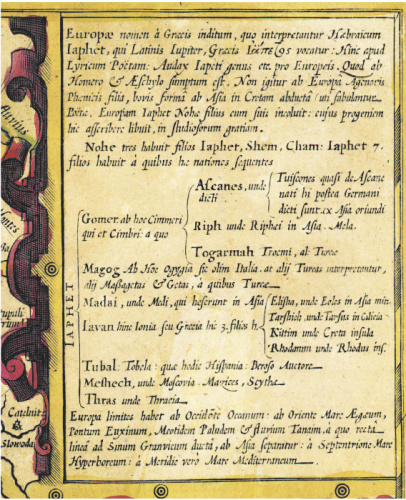 Europæ nomen â Græcis inditum, quo interpretantur Hebraicum
Iaphet, qui Latinis Iupiter, Græcis vocatur: Hinc apud
Lyricum Poëtam: Audax Iapeti genus etc. pro Europeis. Quod ab
Homero & Æschylo sumptum est. Non igitur ab Europa Agenoris
Phenicis filia, bovis forma ab Asia in Cretam abducta (ut fabulantur
Poëte. Europam Iaphet Nohe filius eum suis incoluit: cujus progeniem
hic asscribere libuit, in studiosorum gratiam.
Nohe tres habuit filios Iaphet, Shem, Cham: Iaphet 7.
filios habuit â quibus hæ nationes sequentes
IAPHET
Gomer. ab hoc Cimmeri
qui et Cimbri: a quo
Ascanes, unde
dicti
Tuiscones quasi de Ascane
nati hi postea Germani
dicti sunt. ex Asia oriundi
Riph unde Riphei in Asia. Mela.
Togarmah Trocmi, al: Turce
Magog Ab Hoc Ogygia sic olim Italia. ac alij Turcas interpretantur,
alij Massagetas & Getas, â quibus Turce
Madai, unde Medi, qui heserunt in Asia
Iavan hinc Ionia seu Græcia hic 3. filios h.
Elisha, unde Eoles in Asia min.
Tarshich, unde Tarsus in Cilicia
Kittim unde Creta insula
Rhodanum unde Rhodus ins.
Tubal. Tobela: quæ hodie Hispania: Beroso Auctore
Meshech, unde Moscovia. Mavrices, Scythæ
Thiras unde Thracia
Europa limites habet ab Occidẽte Oceanum: ab Oriente Mare Ægæum,
Pontum Euxinum, Meotidem Paludem & flurium Tanaim, â quo recta
lineâ ad Sinum Granvicum ducta, ab Asia sepantur: â Septentrione Mare
Hyperboreum: â Meridie vero Mare Mediterraneum
Slowoda